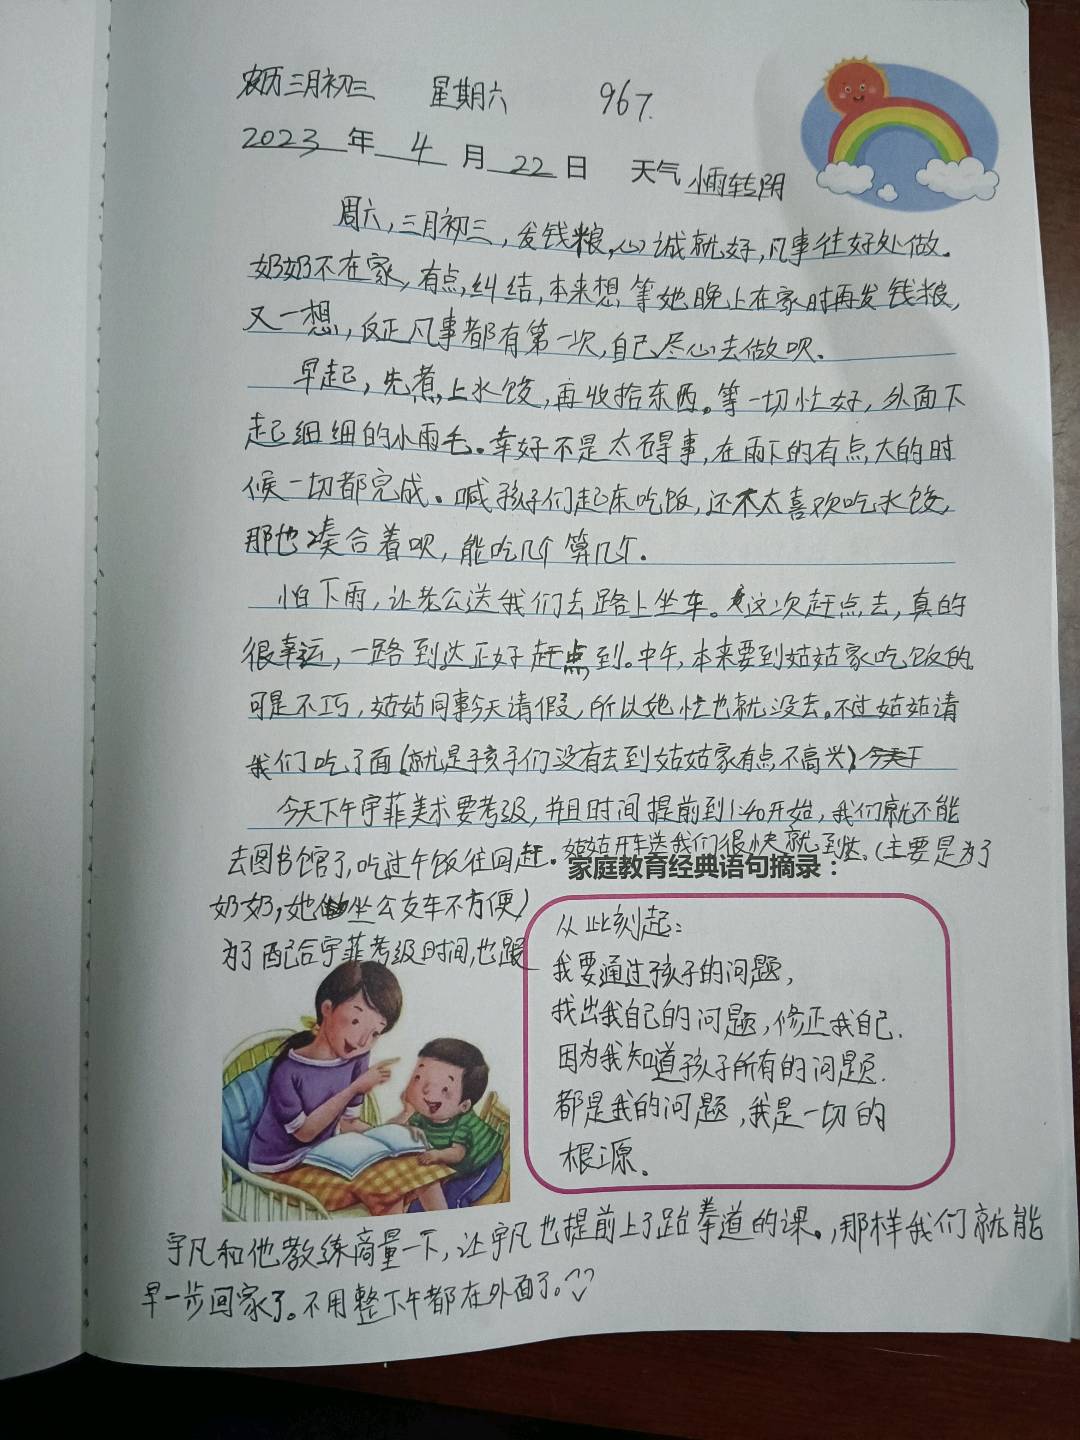 农历三月初三 星期六 967.
2023年4月22日 天气 小雨转阴
周六,三月初三,发钱粮,心诚就好,凡事往好处做.
奶奶不在家,有点纠结,本来想等她晚上在家时再发钱粮,
又一想,反正凡事都有第一次,自己尽心去做呗.
早起,先煮上水饺,再收拾东西。等一切忙好,外面下
起细细的小雨毛。幸好不是太碍事,在雨下的有点大的时
候一切都完成。喊孩子们起床吃饭,还不太喜欢吃水饺,
那也凑合着呗,能吃几个算几个.
怕下雨,让老公送我们去路上坐车。这次赶点去,真的
很幸运,一路到达正好赶点到。中午,本来要到姑姑家吃饭的.
可是不巧,姑姑同事今天请假,所以她忙也就没去。不过姑姑请
我们吃了面(就是孩子们没有去到姑姑家有点不高兴)
今天下午宇菲美术要考级,并且时间提前到1:40开始,我们就不能
去图书馆了,吃过午饭往回赶.姑姑开车送我们很快就到达.(主要是为了
家庭教育经典语句摘录:
奶奶,她坐公交车不方便)
为了配合宇菲考级时间,也跟
从此刻起:
我要通过孩子的问题,
找出我自己的问题,修正我自己.
因为我知道孩子所有的问题.
都是我的问题,我是一切的
根源。
宇凡和他教练商量一下,让宇凡也提前上了跆拳道的课。,那样我们就能
早一步回家了。不用整下午都在外面了。